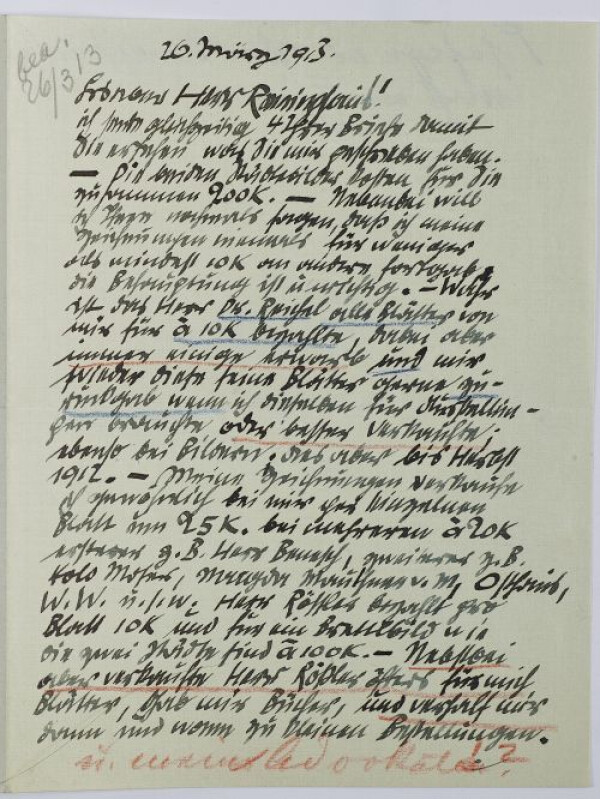 bea.
26/3 13
26. März 1913.
Lieber Herr Reininghaus!
ich sende gleichzeitig 4 Ihrer Briefe damit
Sie ersehen was Sie mir geschrieben haben.
— Die beiden Städtebilder kosten für Sie
zusammen 200 K. — Nebenbei will
ich Ihnen nochmals sagen, daß ich meine
Zeichnungen niemals für weniger
als mindest 10 K an andere fortgab,
die Behauptung ist unrichtig. — Wahr
ist das Herr Dr. Reichel alle Blätter von
mir für à 10 K bezahlte, dabei aber
immer einige erwarb und mir
wieder diese seine Blätter gerne zu-
rückgab wenn ich dieselben für Ausstellun-
gen brauchte oder besser verkaufte,
ebenso bei Bildern. das aber bis Herbst
1912. — Meine Zeichnungen verkaufe
ich gewöhnlich bei mir per einzelnen
Blatt um 25 K. bei mehreren à 20 K
ersteres z.B. Herr Benesch, zweiteres z.B.
Kolo Moser, Magda Mautner v. M, Osthaus,
W.W. u.s.w. Herr Rößler bezahlt pro
Blatt 10 K und für ein Brettbild wie
die zwei Städte sind à 100 K. — Nebstbei
aber verkaufte Herr Rößler öfters für mich
Blätter, gab mir Bücher, und verhalf mir
dann und wann zu kleinen Bestellungen.
u. mein Advokat!?